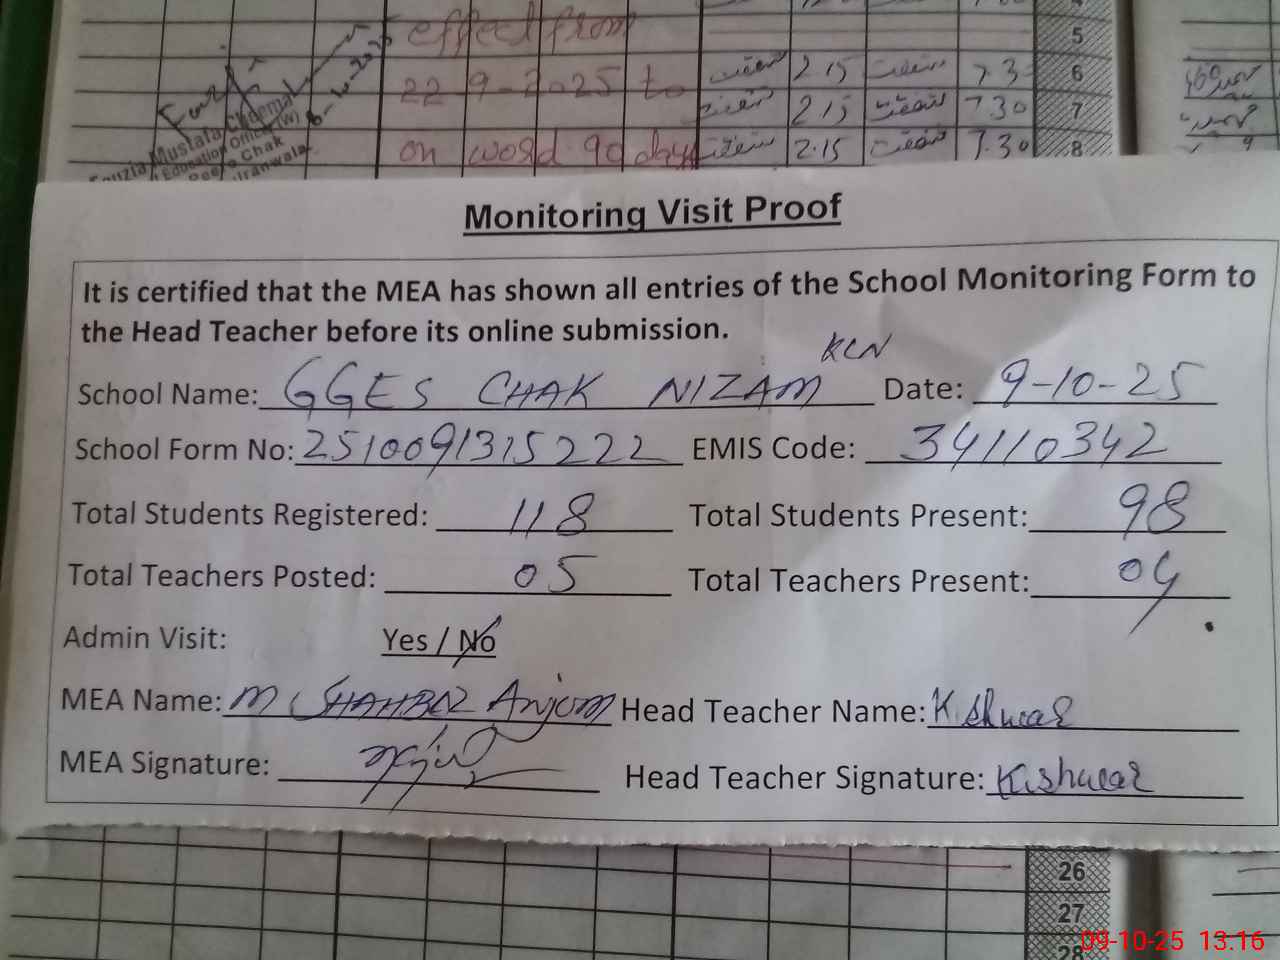 effect from
5
22 9-2025 to
2.15 7.30 6
2.15 7.30 7
on word 90 days
2.15 7.30 8
Mustafa
Education Officer (W)
Chak
Monitoring Visit Proof
It is certified that the MEA has shown all entries of the School Monitoring Form to
the Head Teacher before its online submission.
KLN
School Name: GGES CHAK NIZAM Date: 9-10-25
School Form No: 2510091315222 EMIS Code: 34110342
Total Students Registered: 118 Total Students Present: 98
Total Teachers Posted: 05 Total Teachers Present: 04
Admin Visit: Yes / No
MEA Name: M SHAHBAZ Anjum Head Teacher Name: Kishwar
MEA Signature: Head Teacher Signature: Kishwar
26
27
28
09-10-25 13:16